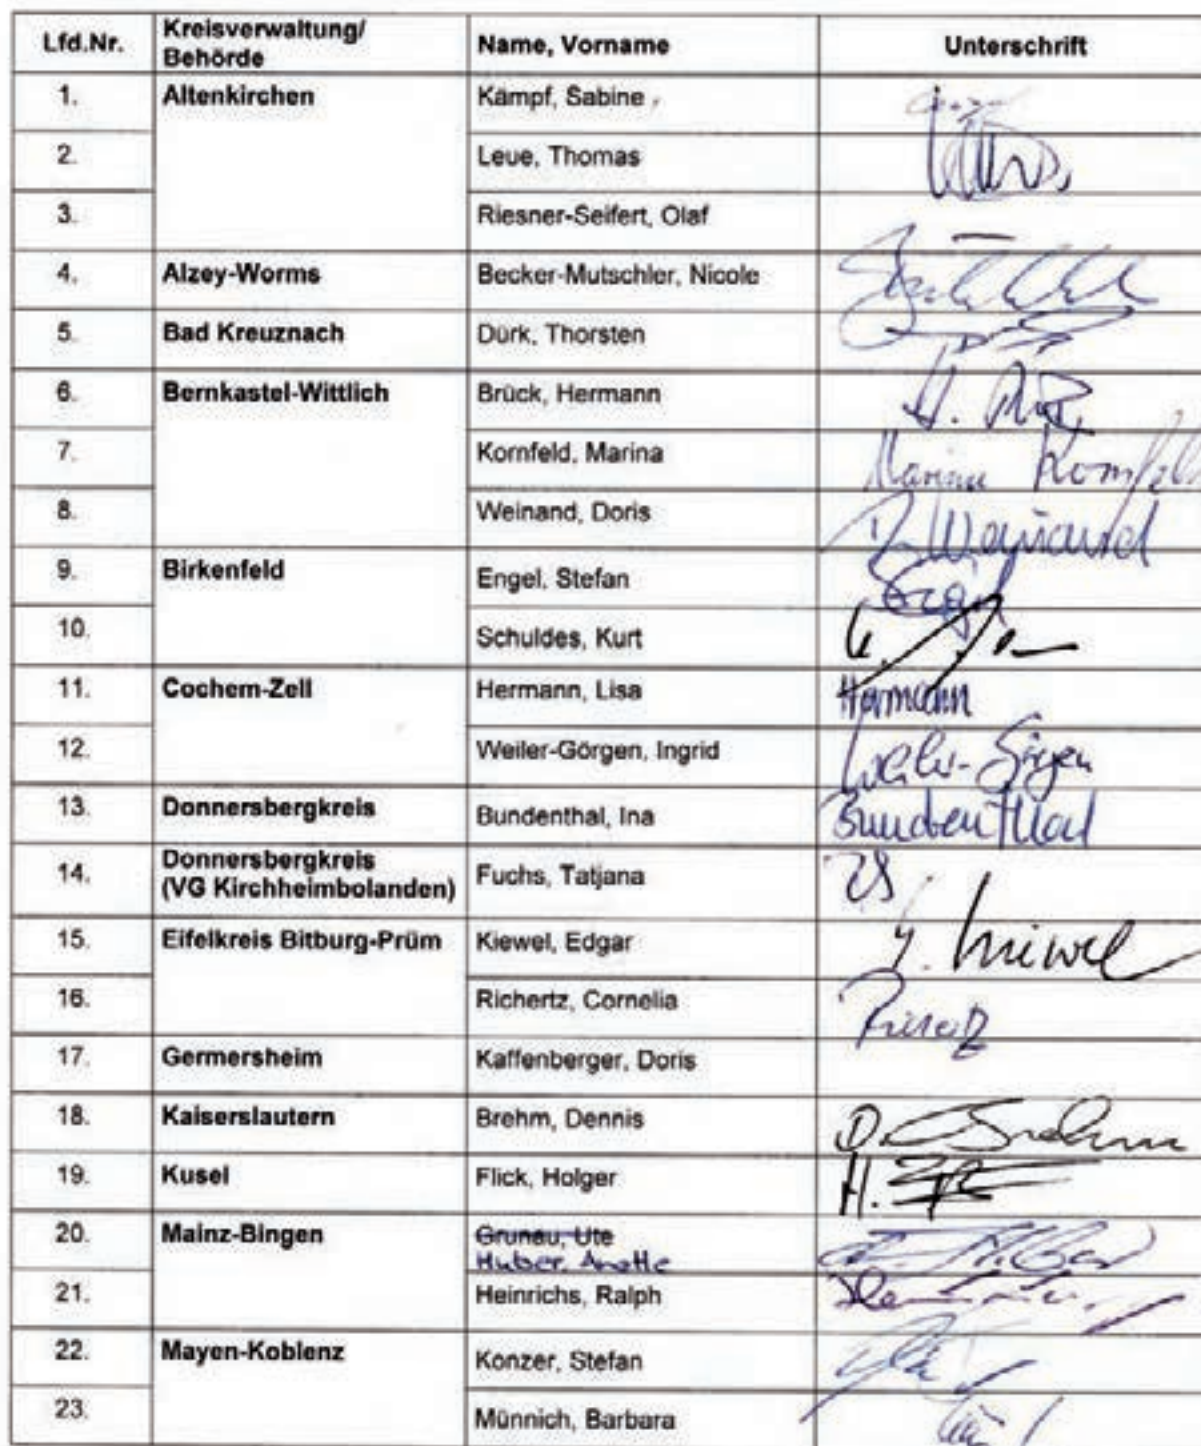 Lfd.Nr. Kreisverwaltung/ Behörde Name, Vorname Unterschrift
1. Altenkirchen Kämpf, Sabine
2. Leue, Thomas
3. Riesner-Seifert, Olaf
4. Alzey-Worms Becker-Mutschler, Nicole
5. Bad Kreuznach Dürk, Thorsten
6. Bernkastel-Wittlich Brück, Hermann H.
7. Kornfeld, Marina Marina Kornfeld
8. Weinand, Doris D. Weinand
9. Birkenfeld Engel, Stefan Engel
10. Schuldes, Kurt K.
11. Cochem-Zell Hermann, Lisa Hermann
12. Weiler-Görgen, Ingrid Weiler-Görgen
13. Donnersbergkreis Bundenthal, Ina Bundenthal
14. Donnersbergkreis
(VG Kirchheimbolanden) Fuchs, Tatjana
15. Eifelkreis Bitburg-Prüm Kiewel, Edgar Kiewel
16. Richertz, Cornelia
17. Germersheim Kaffenberger, Doris
18. Kaiserslautern Brehm, Dennis D. Brehm
19. Kusel Flick, Holger H.
20. Mainz-Bingen Grunau, Ute
Huber, Anette
21. Heinrichs, Ralph
22. Mayen-Koblenz Konzer, Stefan
23. Münnich, Barbara